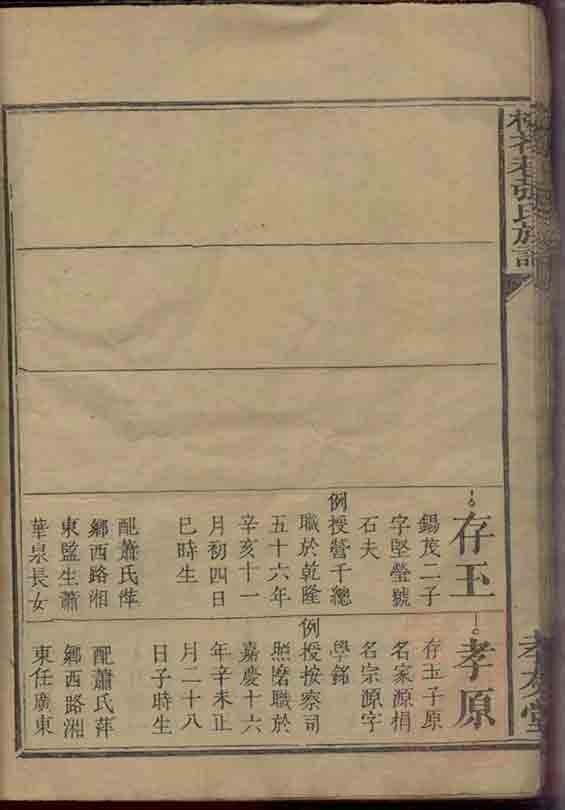 張氏族譜
孝友堂
存玉
錫茂二子
字堅瑩號
石夫
例授營千總
職於乾隆
五十六年
辛亥十一
月初四日
巳時生
配蕭氏萍
鄉西路湘
東監生蕭
華泉長女
孝原
存玉子原
名家源捐
名宗源字
學銘
例授按察司
照磨職於
嘉慶十六
年辛未正
月二十八
日子時生
配蕭氏萍
鄉西路湘
東任廣東